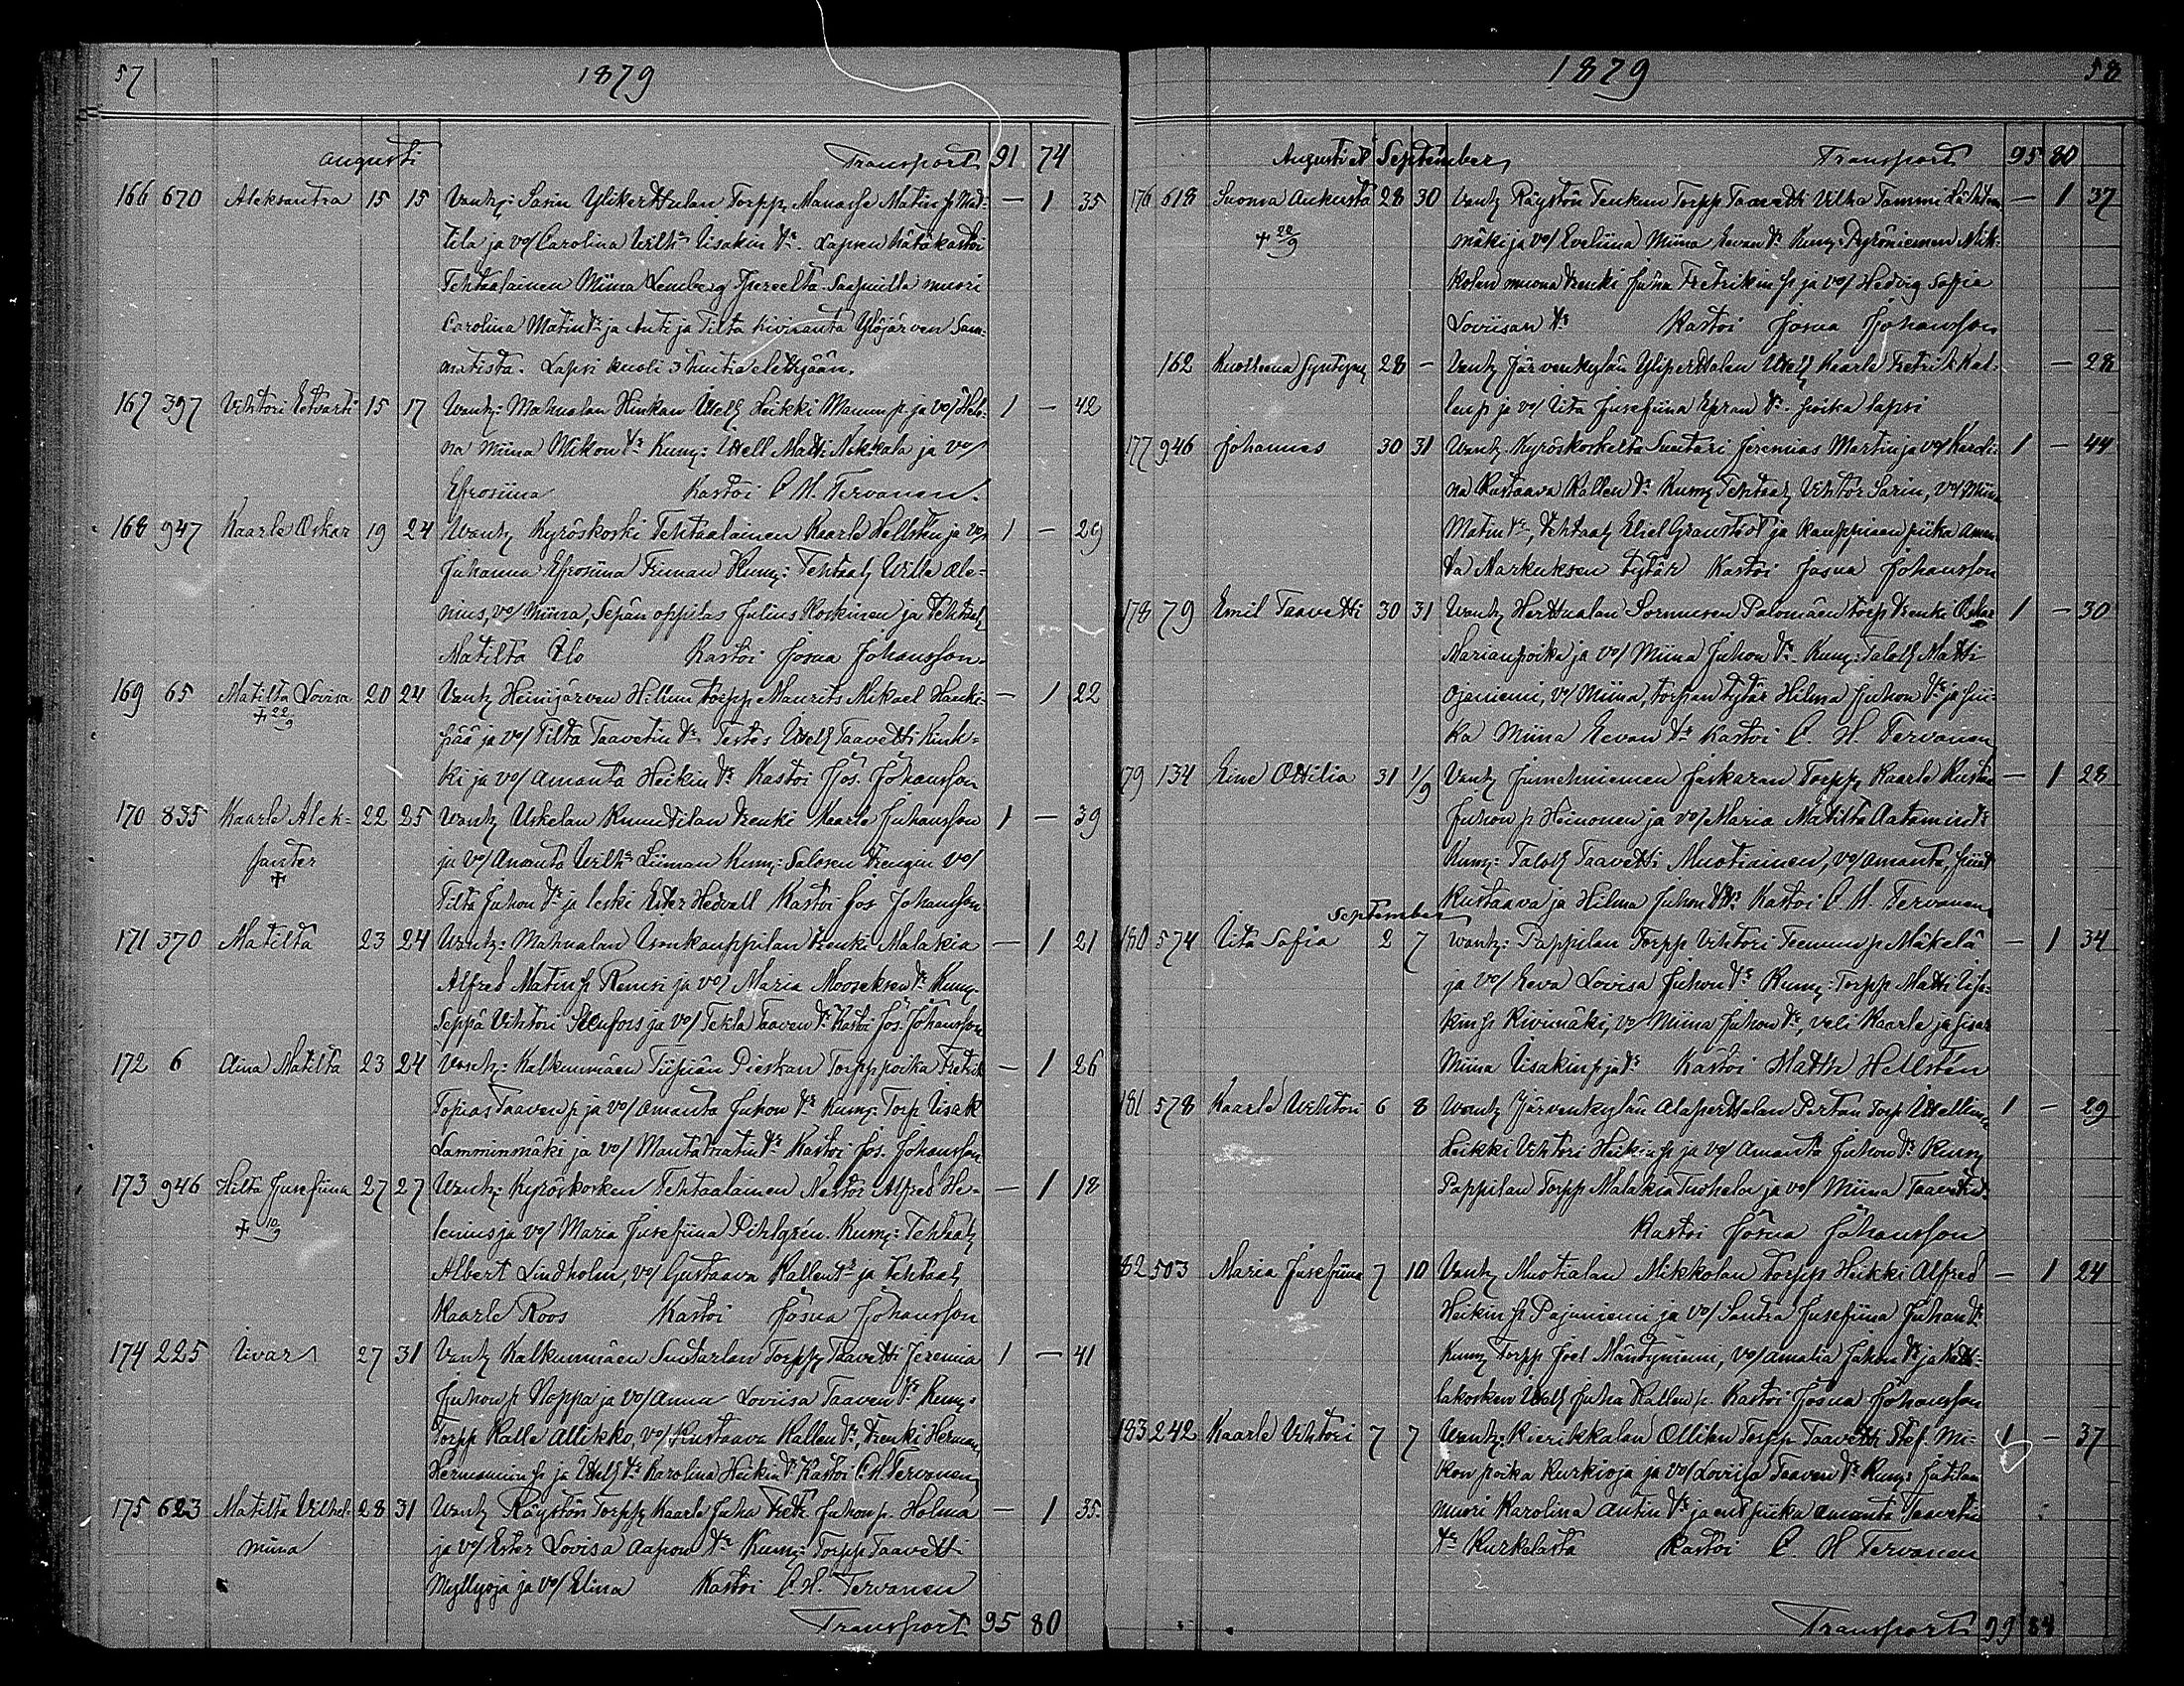 57 1879
Augusti Transport 91 74
166 670 Aleksantra 15 15 Vanh: Sasin Ylikerttulan Torpp. Manasse Matin p. Mat- — 1 35
tila ja vo/ Carolina Wilh:a Iisakin tr. Lapsen hätäkastoi
Tehtaalainen Miina Lemberg Saapuilla muori
Carolina Matin tr ja Anti ja Tilta Kiviranta Ylöjärven
Lapsi kuoli 3 tuntia elettyään.
167 397 Vihtori Etvarti 15 17 Vanh: Mahnalan Hinkan Itell. Heikki Mannun p. ja vo/ Hele- 1 — 42
na Miina Mikon tr Kum: Itell Matti Nokkala ja vo/
Efrosiina Kastoi C. H. Tervonen.
168 947 Kaarle Oskar 19 24 Vanh. Kyröskoski Tehtaalainen Kaarle Hellsten ja vo/ 1 — 29
Juhanna Efrosiina Friman Kum: Tehtaal. Wille Ole-
nius, vo/ Miina, Sepän oppilas Julius Koskinen ja tehtaal.
Matilta Ilo Kastoi Josua Johansson.
169 65 Matilta Lovisa 20 24 Vanh. Heinijärven Hillun torpp. Maurits Mikael Hanki- — 1 22
+ 22/9 pää ja vo/ Tilta Taavetin tr. Testes Itell. Taavetti Kink-
ki ja vo/ Amanta Heikin tr Kastoi Jos. Johansson
170 835 Kaarle Alek- 22 25 Vanh. Uskelan Knuutilan trenki Kaarle Juhansson 1 — 39
santer ja vo/ Amanta Wilh:a Liiman Kum: Salosen trengin vo/
+ Tilta Juhon tr ja leski Ester Hedvall Kastoi Jos Johansson.
171 370 Matilta 23 24 Vanh: Mahnalan trenki Malakia — 1 21
Alfred Matin p. Remsi ja vo/ Maria Mooseksen tr Kum.
Seppä Vihtori Stenfors ja vo/ Tekla Taaven tr Kastoi Jos. Johansson
172 6 Aina Matilta 23 24 Vanh: Kalkunmäen Tiipiän Pieskan Torpp poika Fretrik — 1 26
Topias Taaven p. ja vo/ Amanta Juhon tr Kum: Torp Iisak
Lamminmäki ja vo/ Manta Matin tr Kastoi Jos. Johansson
173 946 Hilta Josefiina 27 27 Vanh: Kyröskosken Tehtaalainen Nestor Alfred He- — 1 18
+ 10/9 lenius ja vo/ Maria Josefiina Pihlgrén. Kum: Tehtaal.
Albert Lindholm, vo/ Gustaava Kallen tr ja tehtaal.
Kaarle Roos Kastoi Josua Johansson
174 225 Iivar 27 31 Vanh. Kalkunmäen Suutarlan Torpp. Taavetti Jeremia 1 — 41
Juhon p Noppa ja vo/ Anna Loviisa Taaven tr Kum:
Torpp Kalle Allikko, vo/ Kustaava Kallen tr, trenki Herman
Hermannin p ja Itell. tr Karolina Heikin tr Kastoi C. H. Tervonen
175 623 Matilta Vilhel- 28 31 Vanh. Räystön Torpp. Kaarle Juha Fretr. Juhon p. Holma — 1 35.
miina ja vo/ Ester Lovisa Aapon tr Kum: Torpp Taavetti
Myllyoja ja vo/ Elina Kastoi C. H. Tervonen
Transport 95 80
1879 58
Augusti et September Transport 95 80
176 618 Suoma Aukusta 28 30 Vanh. Räystön Tenkun Torpp Taavetti Vilho Tammi Lähteen- — 1 37
+ 22/9 mäki ja vo/ Eveliina Miina Eevan tr Kum: Pyröniemen Mik-
kolan muona trenki Juha Fretrikin p ja vo/ Hedvig Sofia
Loviisan tr Kastoi Josua Johansson
162 Kuolleena syntynyt 28 — Vanh. Järvenkylän Ylipertulan Itell. Kaarle Fretrik Kal- — 28
len p ja vo/ Iita Josefiina tr. poika lapsi
177 946 Johannes 30 31 Vanh. Kyröskoskelta Suutari Jeremias Martin ja vo/ Karoli- 1 — 44
na Kustaava Kallen tr Kum. Tehtaal. Vihtor Sarin, vo/ Miina
Matin tr, tehtaal. Eliel Granstöt ja kauppiaan piika Aman-
ta Markuksen tytär Kastoi Josua Johansson
178 79 Emil Taavetti 30 31 Vanh. Herttualan Sormusen Palomäen torp trenki Oskar 1 — 30
Marian poika ja vo/ Miina Juhon tr. Kum: Taloll. Matti
Ojaniemi, vo/ Miina, torpan tytär Hilma Juhon tr ja pii-
ka Miina Eevan tr Kastoi C. H. Tervonen
179 134 Eine Ottilia 31 1/9 Vanh. Jumesniemen Jaskaran Torpp. Kaarle Kusta — 1 28
Juhon p Heinonen ja vo/ Maria Matilta Aatamin tr
Kum: Taloll. Taavetti Muotiainen, vo/ Amanta, piiat
Kustaava ja Hilma Juhon tr Kastoi C. H. Tervonen.
September
180 574 Iita Sofia 2 7 Vanh: Pappilan Torpp Vihtori Teemun p Mäkelä — 1 34
ja vo/ Eeva Lovisa Juhon tr Kum: Torpp Matti Iisa-
kin p Kivimäki, vo/ Miina Juhon tr, veli Kaarle ja sisar
Miina Iisakin p ja tr Kastoi Matti Hellsten
181 578 Kaarle Vihtori 6 8 Vanh. Järvenkylän Alaperttulan Pertun Torp Itellinen 1 — 29
Heikki Vihtori Heikin p ja vo/ Amanta Juhon tr Kum.
Pappilan Torpp Malakia Tuohela ja vo/ Miina Taavetin tr
Kastoi Josua Johansson
182 503 Maria Josefiina 7 10 Vanh. Muotialan Mikkolan torpp Heikki Alfred — 1 24
Heikin p Pajuniemi ja vo/ Santra Josefiina Juhan tr
Kum. Torpp Joel Mäntyniemi, vo/ Amalia Juhon tr ja Katt-
lakosken Itell. Juha Kallen p. Kastoi Josua Johansson
183 242 Kaarle Vihtori 7 7 Vanh: Kierikkalan Ollilan Torpp Taavetti Stef. Mi- 1 — 37
kon poika Kurkioja ja vo/ Loviisa Taaven tr Kum:
muori Karolina Antin tr ja ent piika Amanta Taavetin
tr Kurkelasta Kastoi C. H Tervonen
Transport 99 84